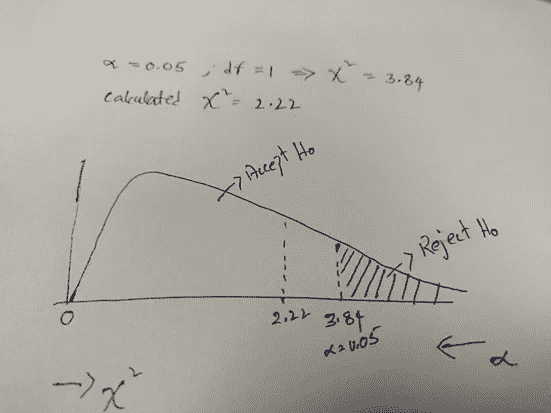 α = 0.05 ; df = 1 => χ² = 3.84
calculated χ² = 2.22
Accept Ho
Reject Ho
0
2.22
3.84
α = 0.05
← α
→ χ²